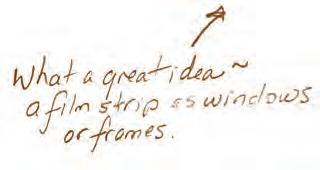 What a great idea ~
a film strip as windows
or frames.